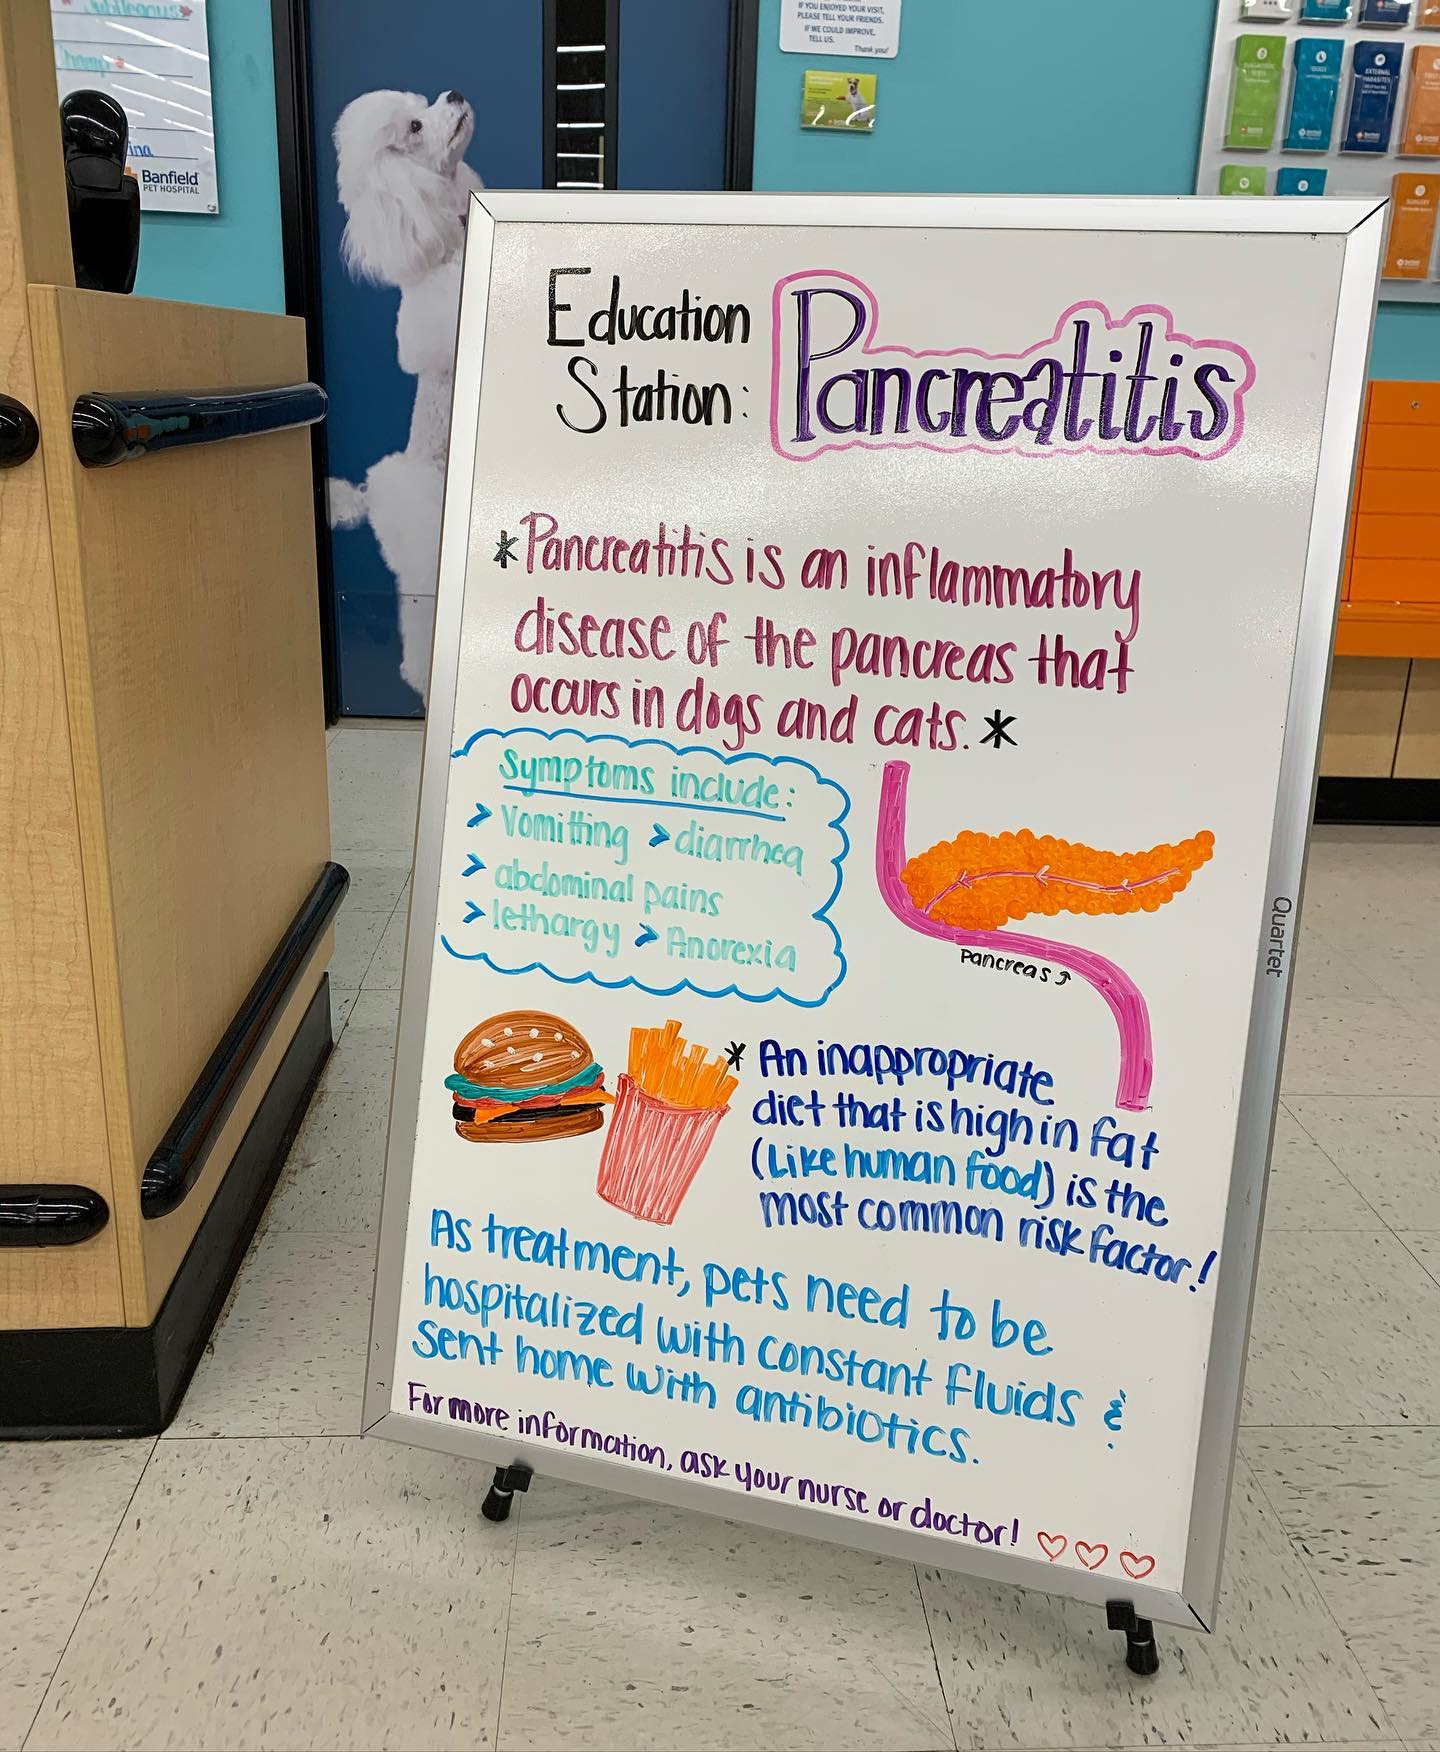 Banfield
PET HOSPITAL
IF YOU ENJOYED YOUR VISIT,
PLEASE TELL YOUR FRIENDS.
IF WE COULD IMPROVE,
TELL US.
Thank you!
EXTERNAL
PARASITES
Education
Station:
Pancreatitis
*Pancreatitis is an inflammatory
disease of the pancreas that
occurs in dogs and cats.*
Symptoms include:
> Vomitting > diarrhea
> abdominal pains
> lethargy > Anorexia
Pancreas
* An inappropriate
diet that is high in fat
(Like human food) is the
most common risk factor!
As treatment, pets need to be
hospitalized with constant fluids &
sent home with antibiotics.
For more information, ask your nurse or doctor!
Quartet